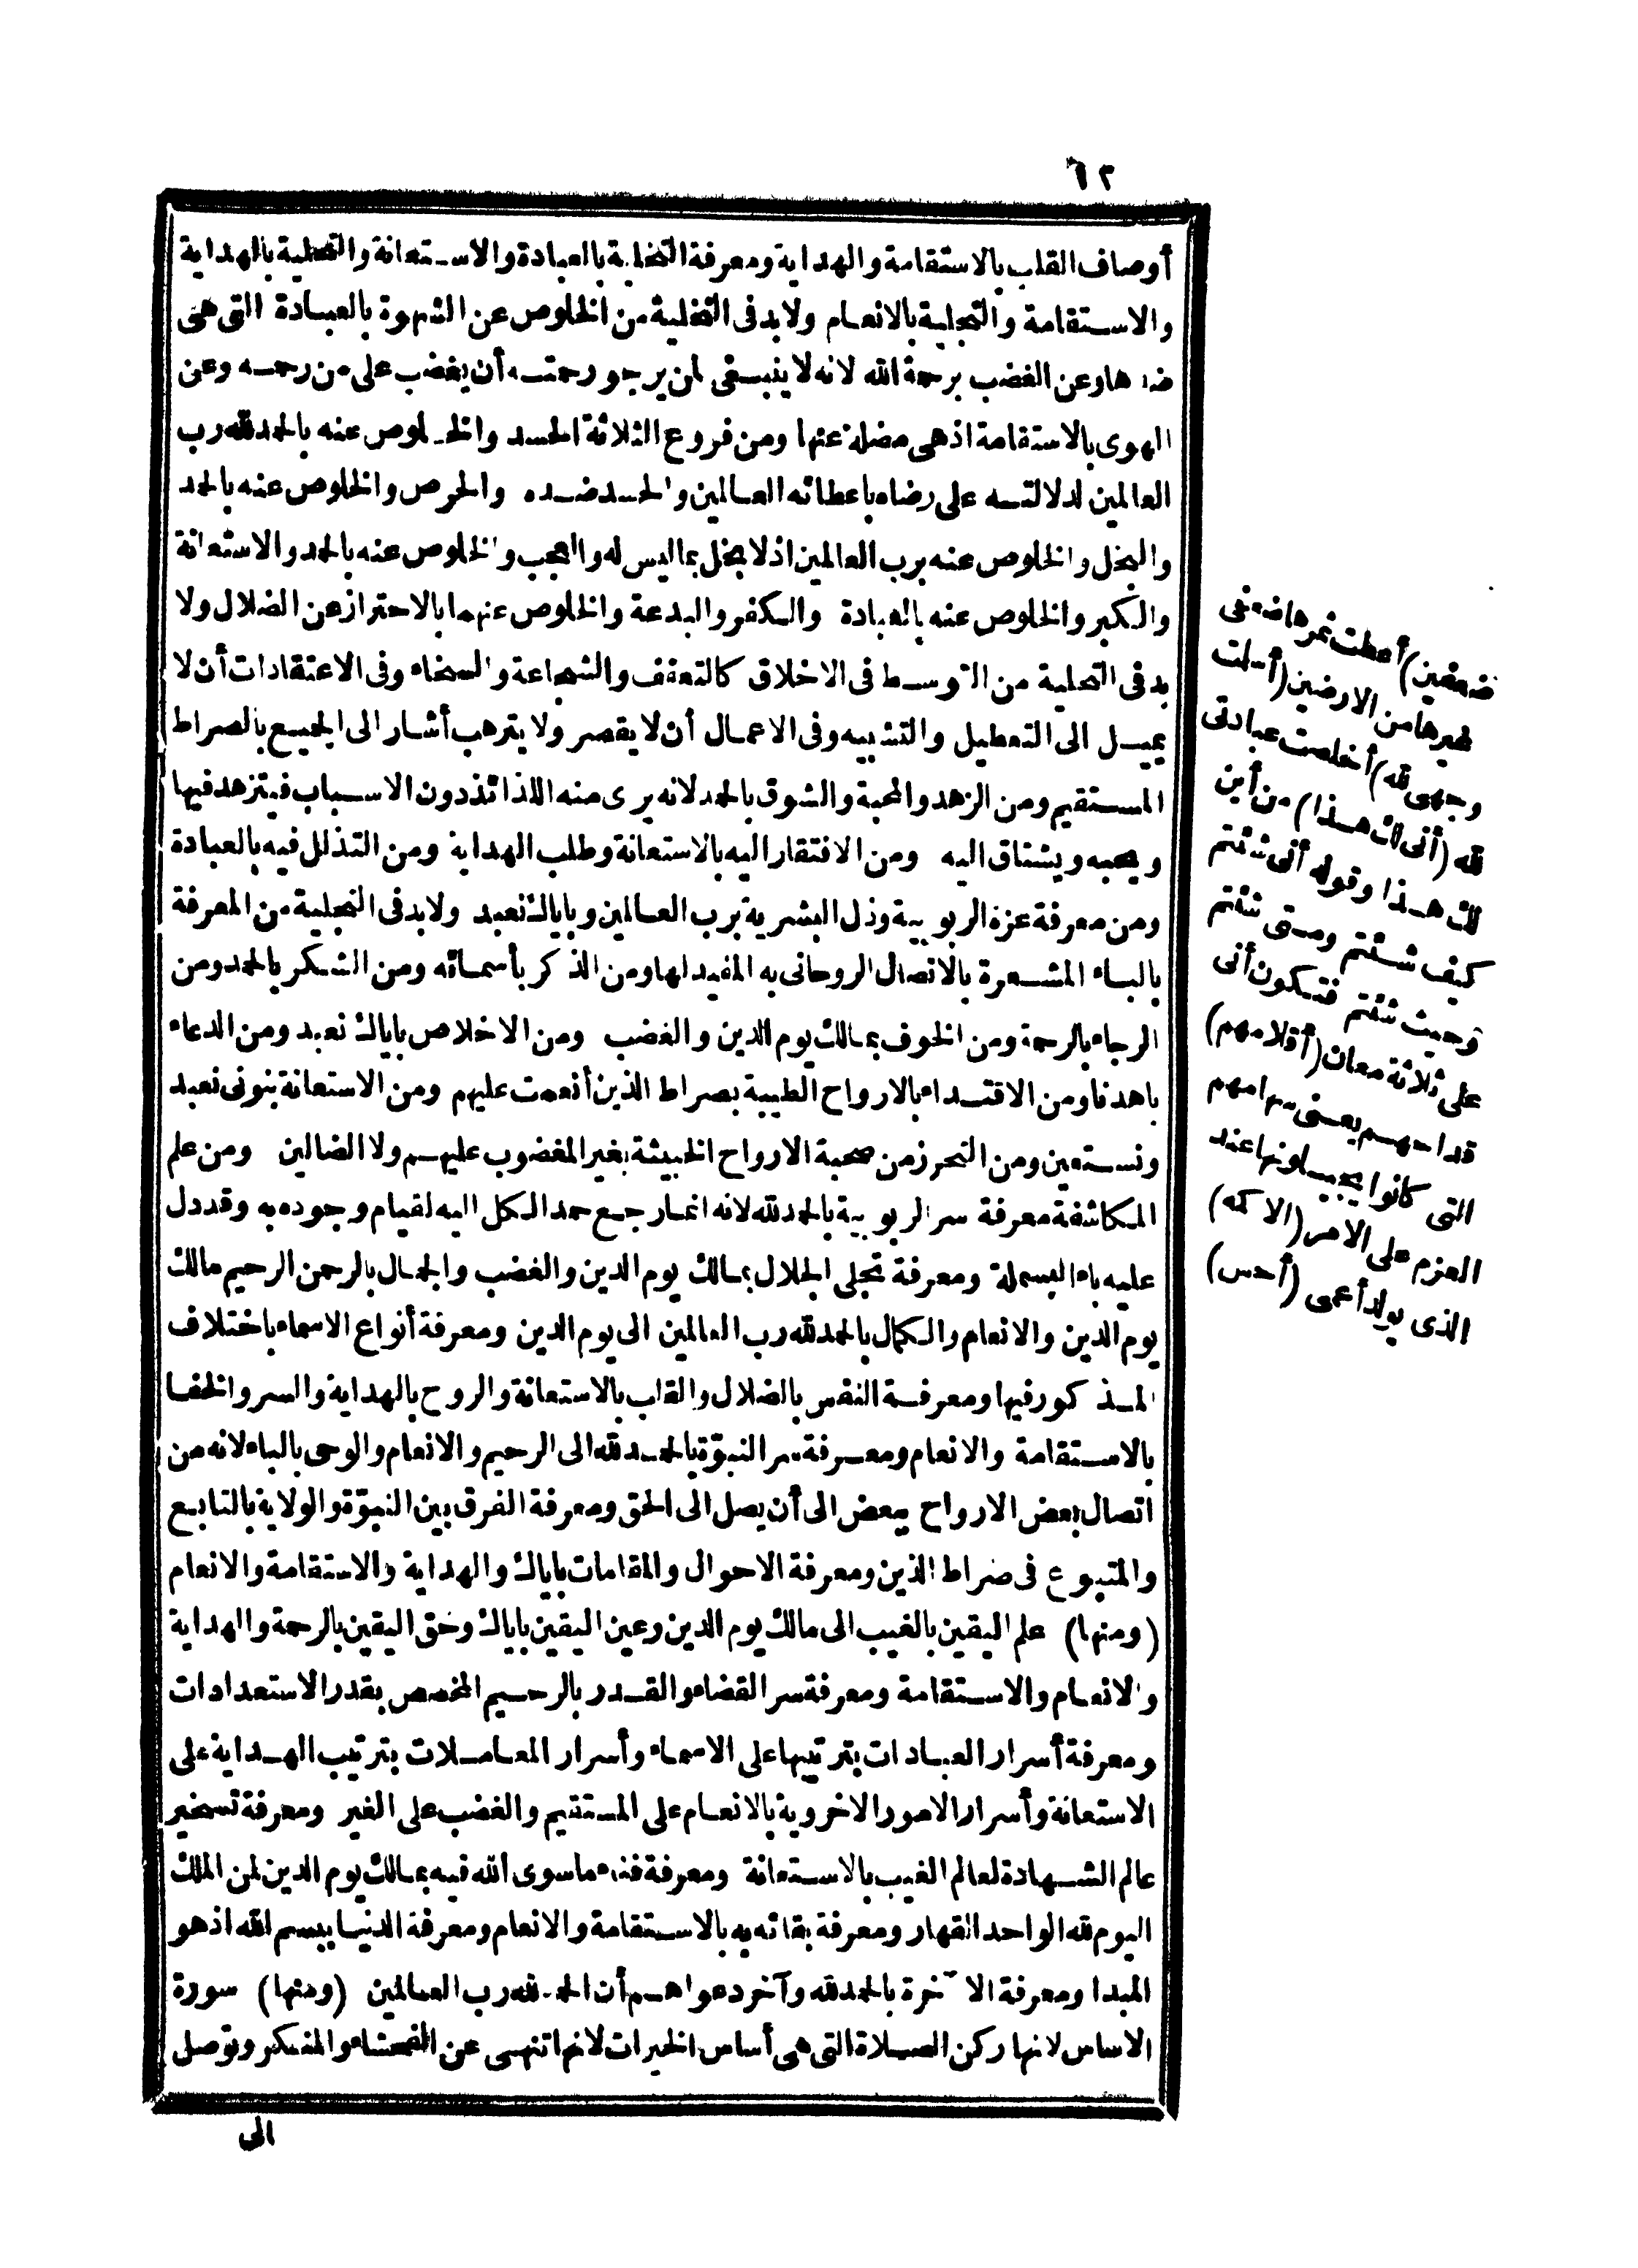 ٦٢
أوصاف القلب بالاستقامة والهداية ومعرفة التخلية بالعبادة والاستعانة والتحلية بالهداية
والاستقامة والتجلية بالانعام ولابد فى التخلية من الخلوص عن الشهوة بالعبادة التى هى
ضدها وعن الغضب برحمة الله لانه لا ينبغى لمن يرجو رحمته أن يغضب على من رحمه وعن
الهوى بالاستقامة اذ هى مضلة عنها ومن فروع الثلاثة الحسد والخلوص عنه بالحمدلله رب
العالمين لدلالته على رضاه باعطائه العالمين والحسد ضده والحرص والخلوص عنه بالحمد
والبخل والخلوص عنه برب العالمين اذ لا بخل بما ليس له والعجب والخلوص عنه بالحمد والاستعانة
والكبر والخلوص عنه بالعبادة والكفر والبدعة والخلوص عنهما بالاحتراز عن الضلال ولا
بد فى التحلية من التوسط فى الاخلاق كالتعفف والشجاعة والسخاء وفى الاعتقادات أن لا
يميل الى التعطيل والتشبيه وفى الاعمال أن لا يقصر ولا يترهب أشار الى الجميع بالصراط
المستقيم ومن الزهد والمحبة والشوق بالحمد لانه يرى منه اللذائذ دون الاسباب فيتزهد فيها
ويحبه ويشتاق اليه ومن الافتقار اليه بالاستعانة وطلب الهداية ومن التذلل فيه بالعبادة
ومن معرفة عزة الربوبية وذل البشرية برب العالمين وباياك نعبد ولابد فى التجلية من المعرفة
بالباء المشعرة بالاتصال الروحانى به المفيد لها ومن الذكر بأسمائه ومن الشكر بالحمد ومن
الرجاء بالرحمة ومن الخوف بمالك يوم الدين والغضب ومن الاخلاص باياك نعبد ومن الدعاء
باهدنا ومن الاقتداء بالارواح الطيبة بصراط الذين أنعمت عليهم ومن الاستعانة بنونى نعبد
ونستعين ومن التحرز من صحبة الارواح الخبيثة بغير المغضوب عليهم ولا الضالين ومن علم
المكاشفة معرفة سر الربوبية بالحمدلله لانه انما رجع حمد الكل اليه لقيام وجوده به وقد دل
عليه باء البسملة ومعرفة تجلى الجلال بمالك يوم الدين والغضب والجمال بالرحمن الرحيم مالك
يوم الدين والانعام والكمال بالحمدلله رب العالمين الى يوم الدين ومعرفة أنواع الاسماء باختلاف
المذكور فيها ومعرفة النفس بالضلال والقلب بالاستعانة والروح بالهداية والسر والخفا
بالاستقامة والانعام ومعرفة سر النبوّة بالحمدلله الى الرحيم والانعام والوحى بالباء لانه من
اتصال بعض الارواح ببعض الى أن يصل الى الحق ومعرفة الفرق بين النبوّة والولاية بالتابع
والمتبوع فى صراط الذين ومعرفة الاحوال والمقامات باياك والهداية والاستقامة والانعام
(ومنها) علم اليقين بالغيب الى مالك يوم الدين وعين اليقين باياك وحق اليقين بالرحمة والهداية
والانعام والاستقامة ومعرفة سر القضاء والقدر بالرحيم المخصص بقدر الاستعدادات
ومعرفة أسرار العبادات بترتيبها على الاسماء وأسرار المعاملات بترتيب الهداية على
الاستعانة وأسرار الامور الاخروية بالانعام على المستقيم والغضب على الغير ومعرفة تسخير
عالم الشهادة لعالم الغيب بالاستعانة ومعرفة فناء ما سوى الله فيه بمالك يوم الدين لمن الملك
اليوم لله الواحد القهار ومعرفة بقائه به بالاستقامة والانعام ومعرفة الدنيا ببسم الله اذ هو
المبدا ومعرفة الآخرة بالحمدلله وآخر دعواهم أن الحمدلله رب العالمين (ومنها) سورة
الاساس لانها ركن الصلاة التى هى أساس الخيرات لانها تنهى عن الفحشاء والمنكر وتوصل
الى
ضعفين) أعطت ثمرها ضعفى
غيرها من الارضين (أسلمت
وجهى لله) أخلصت عبادتى
لله (أنى لك هذا) من أين
لك هذا وقوله أنى شئتم
كيف شئتم ومتى شئتم
وحيث شئتم فتكون أنى
على ثلاثة معان (أقلامهم)
قداحهم يعنى سهامهم
التى كانوا يجيلونها عند
العزم على الامر (الاكمه)
الذى يولد أعمى (أحس)